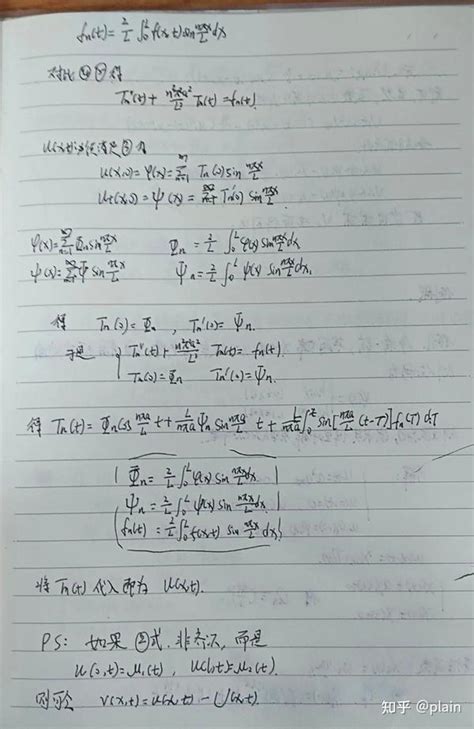 fn(t) = 2/L ∫₀ᴸ f(x,t) sin nπx/L dx
对比④⑦得
Tn''(t) + n²π²a²/L² Tn(t) = fn(t).
u(x,t)还须满足③有
u(x,0) = φ(x) = Σₙ₌₁^∞ Tn(0) sin nπx/L
ut(x,0) = ψ(x) = Σₙ₌₁^∞ Tn'(0) sin nπx/L
φ(x) = Σₙ₌₁^∞ Φn sin nπx/L    Φn = 2/L ∫₀ᴸ φ(x) sin nπx/L dx
ψ(x) = Σₙ₌₁^∞ Ψ sin nπx/L    Ψn = 2/L ∫₀ᴸ ψ(x) sin nπx/L dx.
得 Tn(0) = Φn , Tn'(0) = Ψn.
于是 { Tn''(t) + n²π²a²/L² Tn(t) = fn(t).
Tn(0) = Φn    Tn'(0) = Ψn.
得 Tn(t) = Φn cos nπa/L t + L/nπa Ψn sin nπa/L t + L/nπa ∫₀ᵗ sin[nπa/L (t-τ)] fn(τ) dτ
Φn = 2/L ∫₀ᴸ φ(x) sin nπx/L dx.
Ψn = 2/L ∫₀ᴸ ψ(x) sin nπx/L dx.
fn(t) = 2/L ∫₀ᴸ f(x,t) sin nπx/L dx
将 Tn(t) 代入即为 u(x,t).
PS: 如果②式.非齐次,而是
u(0,t)=μ₁(t) , u(l,t)=μ₂(t).
则令 v(x,t)=u(x,t) - U(x,t).
知乎 @plain